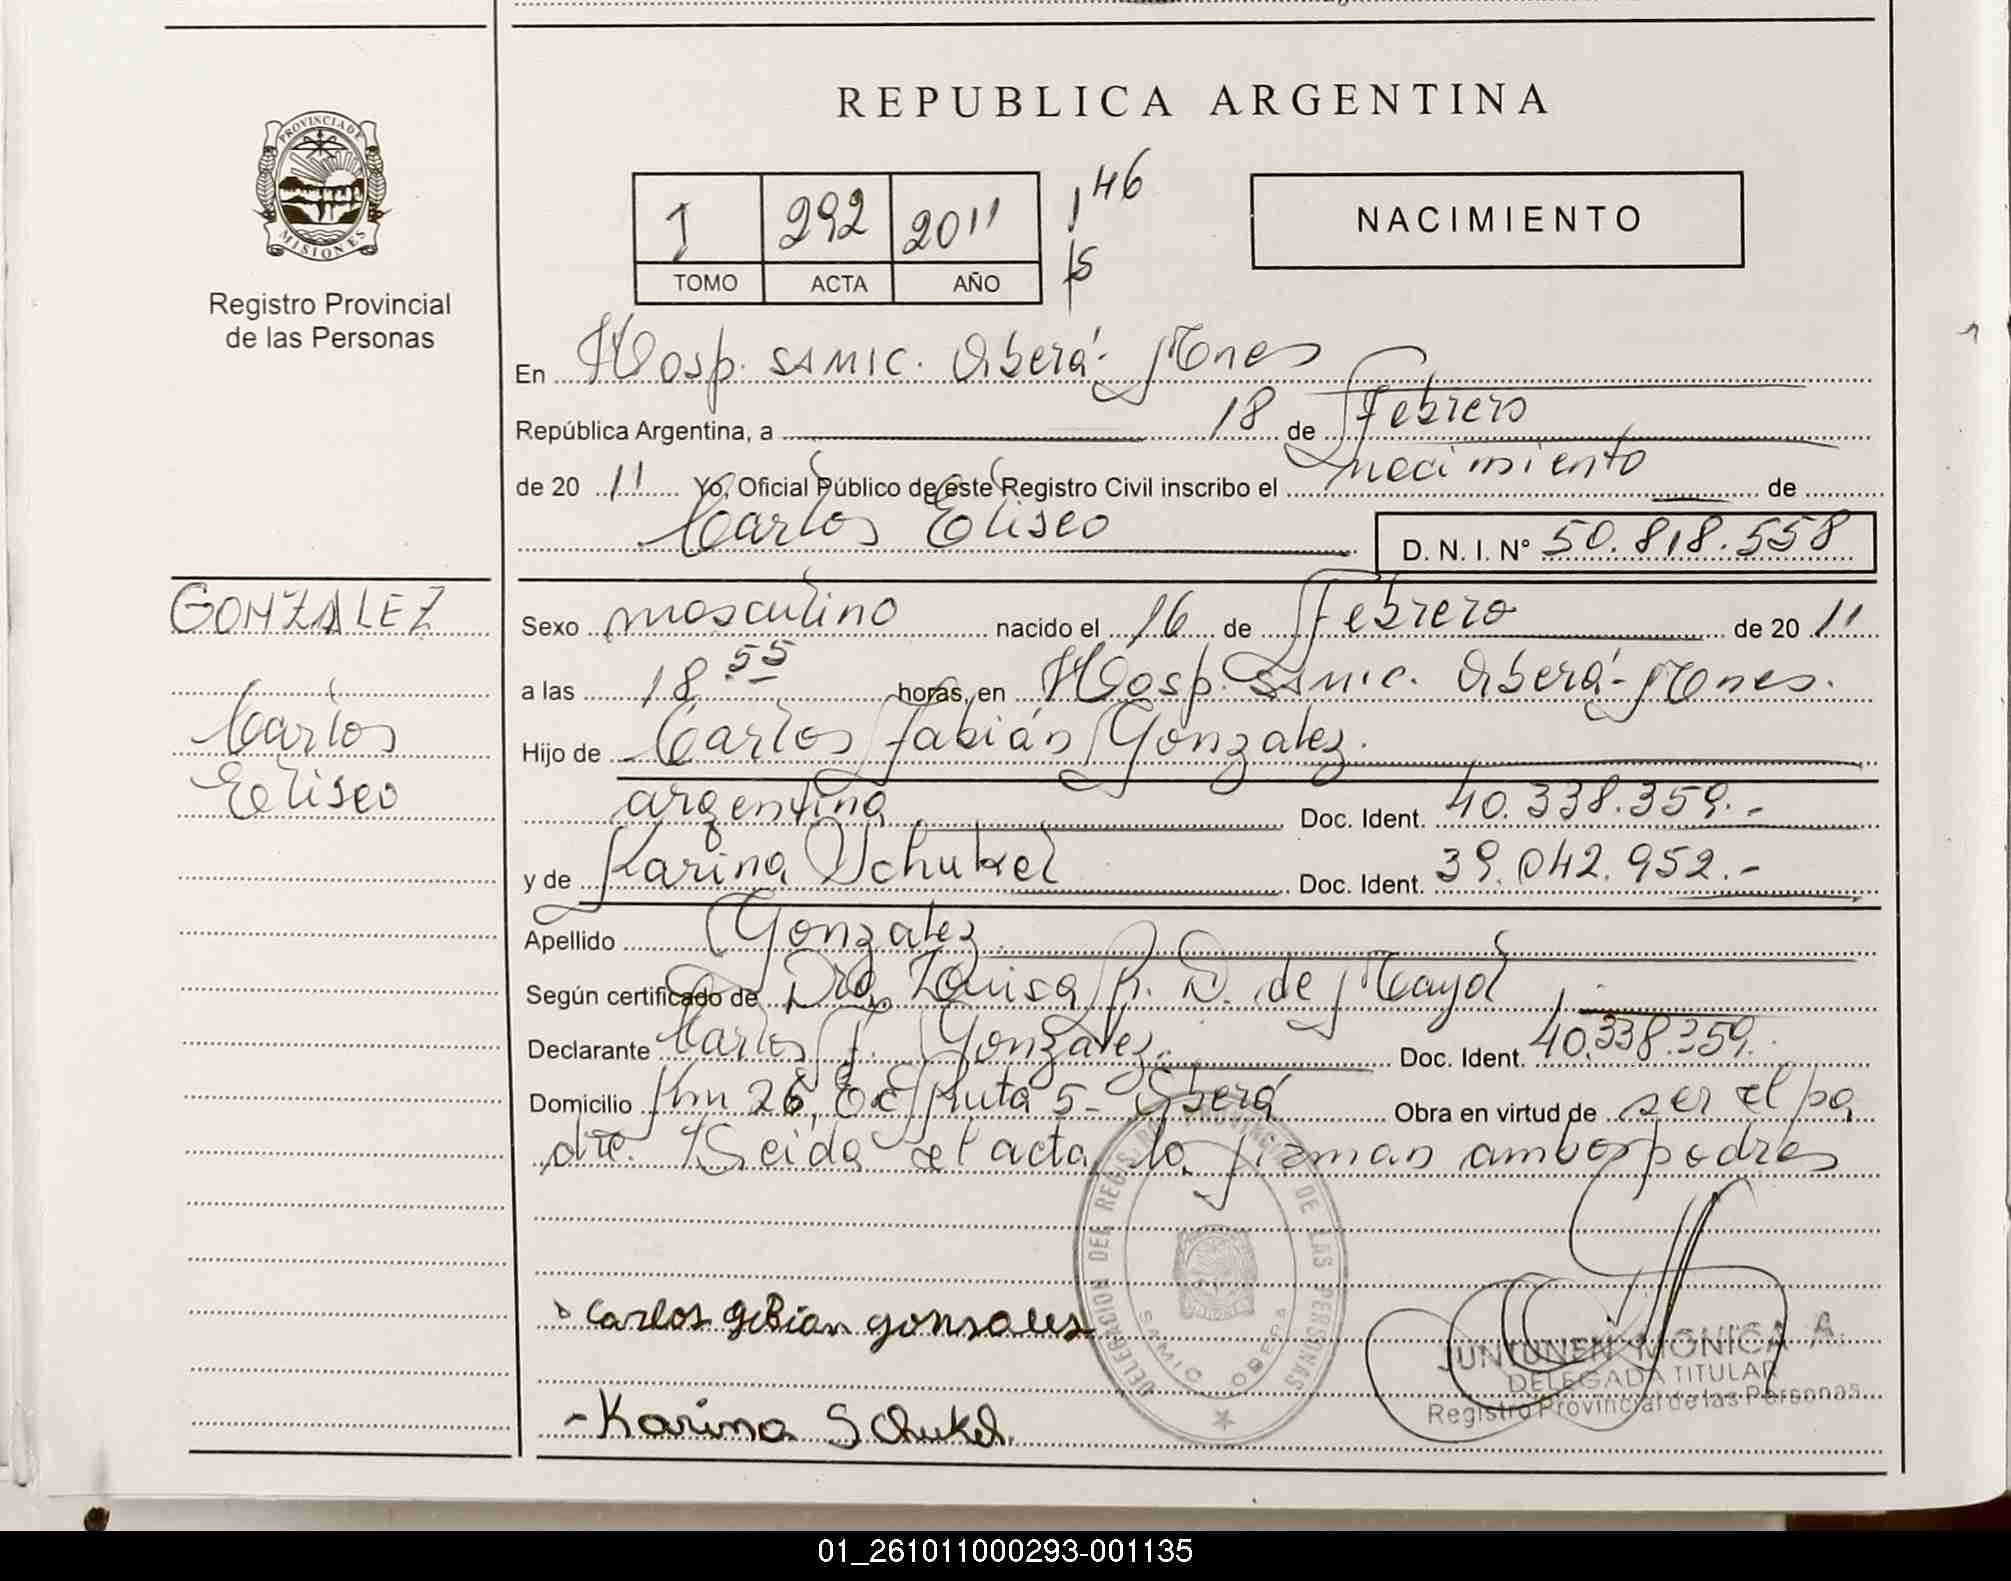 REPUBLICA ARGENTINA
PROVINCIA DE
MISIONES
Registro Provincial
de las Personas
1 292 2011
TOMO ACTA AÑO
146
15
NACIMIENTO
En Hosp. SAMIC. Oberá- Mnes
República Argentina, a 18 de Febrero
de 20 11 Yo, Oficial Público de este Registro Civil inscribo el nacimiento de
Carlos Eliseo D. N. I. N° 50.818.558
GONZALEZ
Carlos
Eliseo
Sexo masculino nacido el 16 de Febrero de 20 11
a las 18.55 horas, en Hosp. SAMIC. Oberá- Mnes.
Hijo de Carlos Fabián Gonzalez.
argentina Doc. Ident. 40.338.359.-
y de Karina Schukel Doc. Ident. 39.042.952.-
Apellido Gonzalez
Según certificado de Dra Luisa R. D. de Mayol
Declarante Carlos F. Gonzalez. Doc. Ident. 40.338.359.
Domicilio Km 26, Ruta 5- Oberá Obra en virtud de ser el pa
dre. Leida el acta, la firman ambos padres
DELEGACION DEL REGISTRO PROVINCIAL DE LAS PERSONAS
SAMIC OBERA
Carlos Fabian gonsales
- Karina Schukel.
JUNTUNEN MONICA A.
DELEGADA TITULAR
Registro Provincial de las Personas
01_261011000293-001135